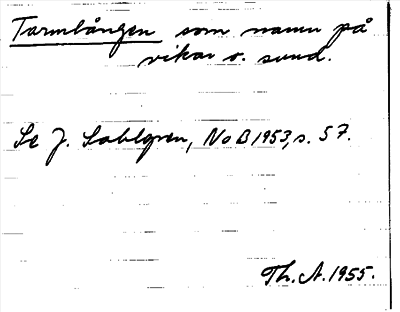 Tarmlången som namn på
vikar o. sund.
Se J. Sahlgren, NoB 1953, s. 57.
Th. A. 1955.